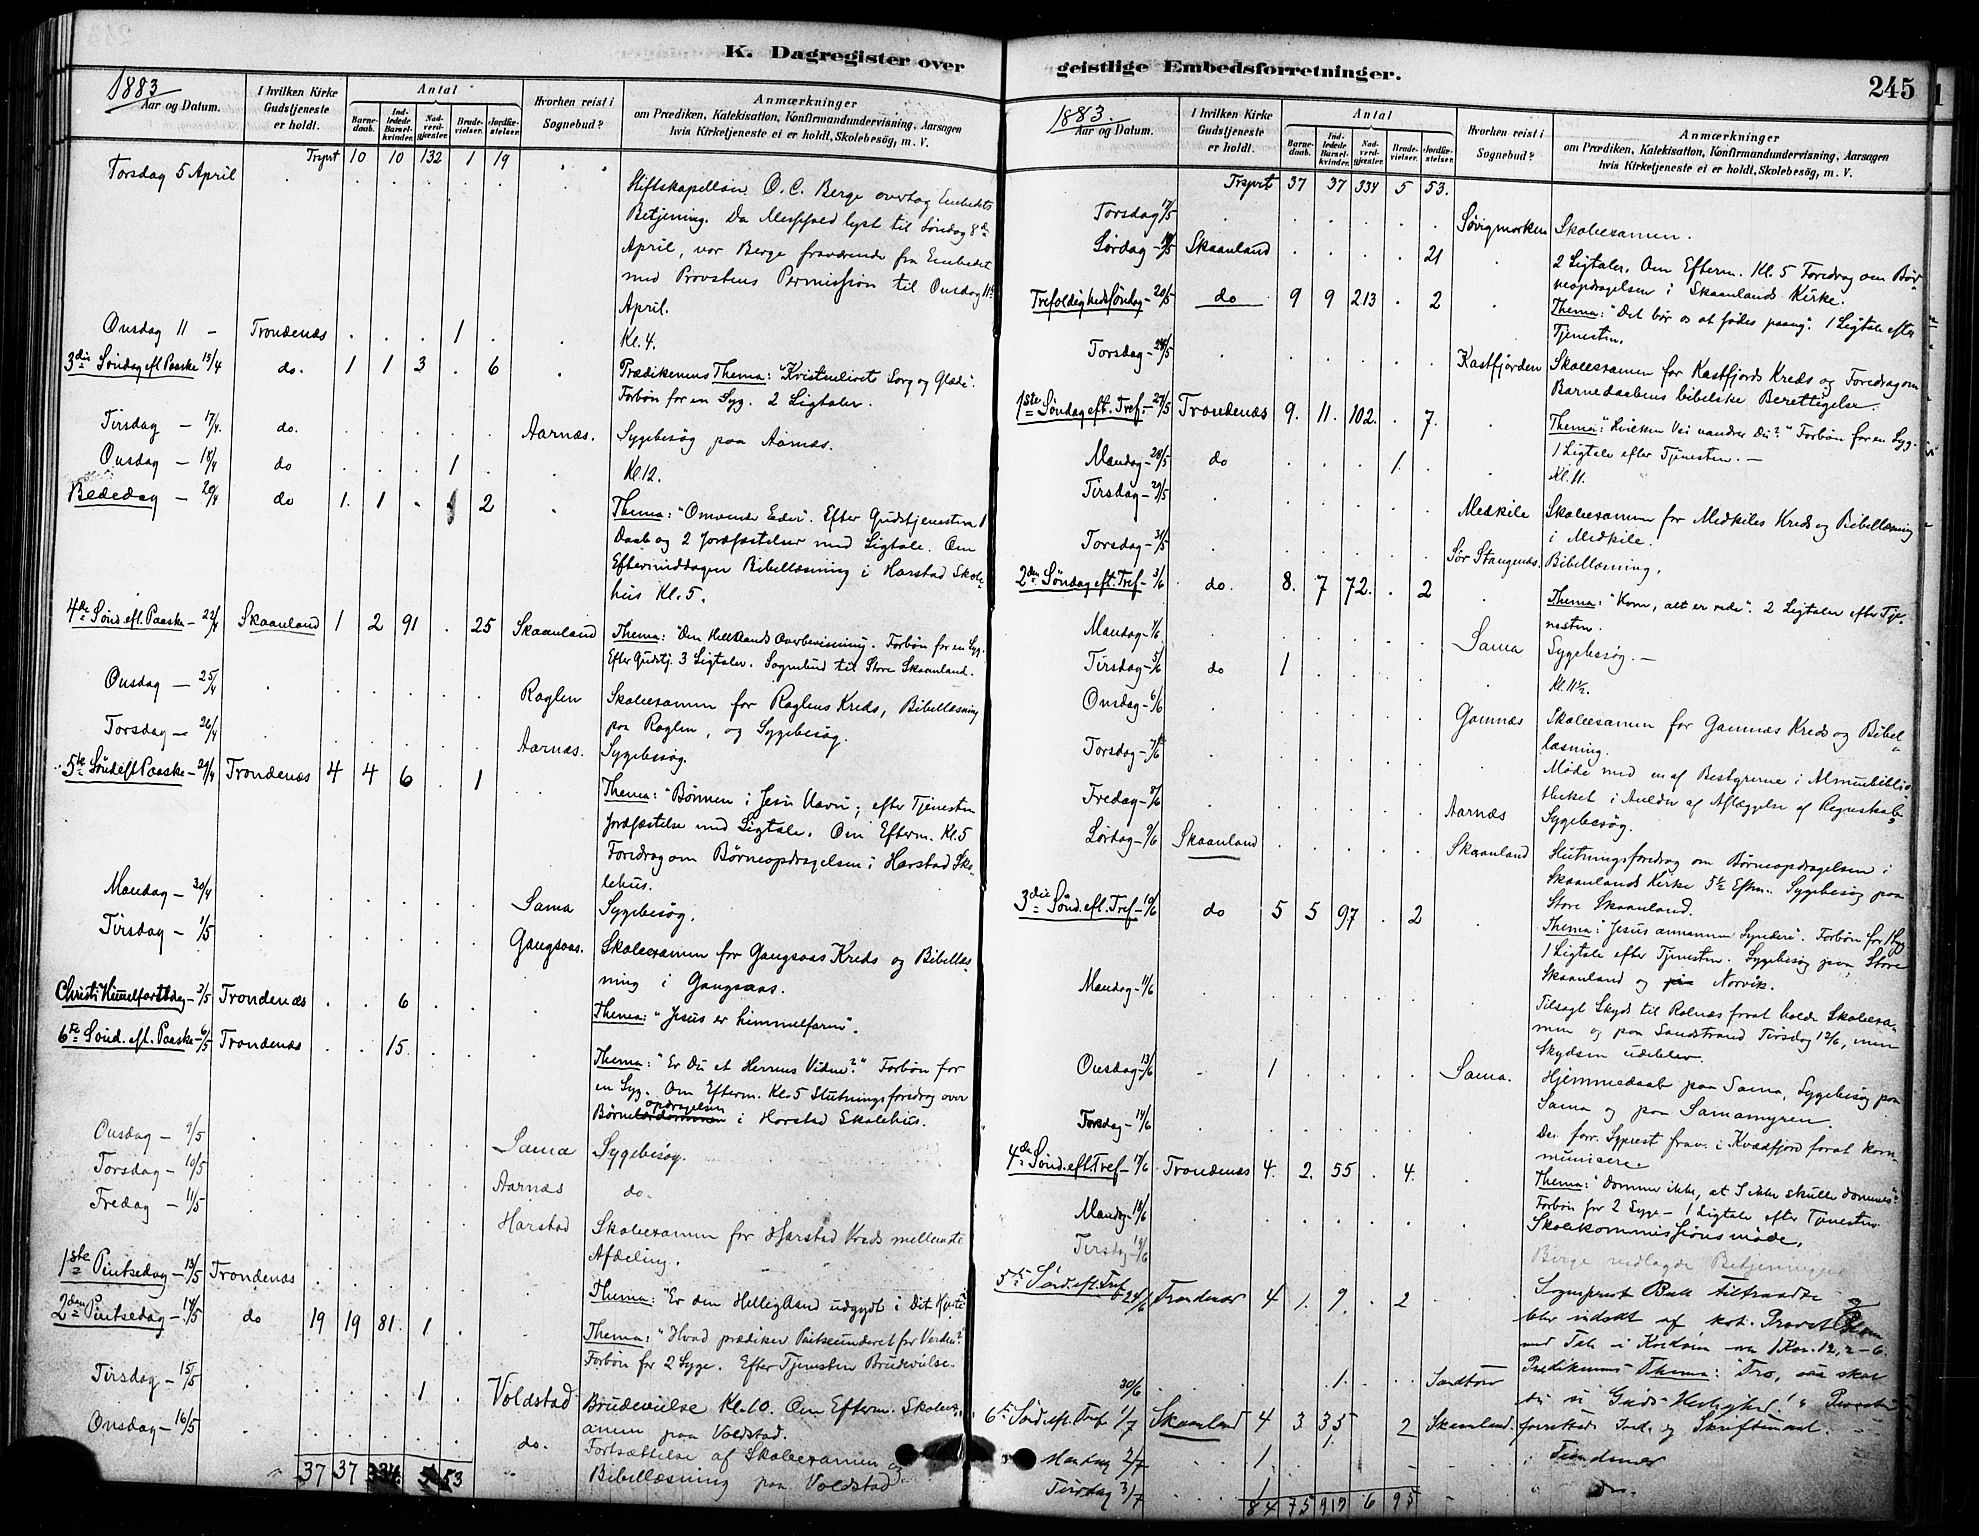 K. Dagregister over
1883
Aar og Datum.
I hvilken Kirke
Gudstjeneste
er holdt.
Antal
Barne-
daab.
Ind-
ledede
Barsel-
kvinder.
Nad-
verd-
gjæster.
Brude-
vielser.
Jordfæ-
stelser.
Hvorhen reist i
Sognebud?
Anmærkninger
om Prædiken, Katekisation, Konfirmandundervisning, Aarsagen
hvis Kirketjeneste ei er holdt, Skolebesøg, m. V.
Trsprt 10 10 132 1 19
Torsdag 5 April Stiftskapellan O. C. Berge overtog Embedets
Betjening. Da Messefald lyst til Søndag 8de
April, var Berge fraværende fra Embedet
med Provstens Permission til Onsdag 11te
April.
Onsdag 11 - Trondenæs . . . 1 . Kl. 4.
3die Søndag eft Paaske 15/4 do. 1 1 3 . 6 Prædikenens Thema: "Kristenlivets Sorg og Glæde".
Forbøn for en Syg. 2 Ligtaler.
Tirsdag - 17/4 do. Aarnæs. Sygebesøg paa Aarnæs.
Onsdag - 18/4 do . . . 1 . Kl. 12.
Bededag - 20/4 do 1. 1 . 2 Thema: "Omvender Eder". Efter Gudstjenesten 1
Daab og 2 Jordfæstelser med Ligtale. Om
Eftermiddagen Bibellæsning i Harstad Skole-
hus Kl. 5.
4de Sønd. eft. Paaske - 22/4 Skaanland 1 2 91 . 25 Skaanland Thema: "Den Helligaands Overbevisning. Forbøn for en Syg.
Efter Gudstj. 3 Ligtaler. Sognebud til Store Skaanland.
Onsdag - 25/4 Røglen Skoleexamen for Røglens Kreds, Bibellæsning
paa Røglen, og Sygebesøg.
Torsdag - 26/4 Aarnæs. Sygebesøg.
5te Sønd eft Paaske - 29/4 Trondenæs 4 4 6 . 1 Thema: "Bønnen i Jesu Navn; efter Tjenesten
Jordfæstelse med Ligtale. Om Efterm. Kl. 5
Foredrag om Børneopdragelsen i Harstad Sko-
lehus.
Mandag - 30/4 Sama Sygebesøg.
Tirsdag - 1/5 Gangsaas. Skoleexamen for Gangsaas Kreds og Bibellæs-
ning i Gangsaas.
Christi Himmelfartsdag - 3/5 Trondenæs . . 6 Thema: "Jesus er himmelfaren".
6te Sønd. eft. Paaske - 6/5 Trondenæs . . 15 Thema: "Er Du et Herrens Vidne?" Forbøn for
en Syg. Om Efterm. Kl. 5 Slutningsforedrag over
Børneopdragelsen i Harstad Skolehus.
Onsdag - 9/5 Sama Sygebesøg.
Torsdag - 10/5 Aarnæs do.
Fredag - 11/5 Harstad Skoleexamen for Harstad Kreds mellemste
Afdeling.
1ste Pintsedag - 13/5 Trondenæs Thema: "Er den Helligaand udgydt i Dit Hjerte
2den Pintsedag - 14/5 do 19 19 81 1 . Thema: "Hvad prædiker Pintseunderet for Verden?"
Forbøn for 2 Syge. Efter Tjenesten Brudevielse.
Tirsdag - 15/5 . . . 1 . Voldstad Brudevielse Kl. 10. Om Efterm. Skoleex-
amen paa Voldstad.
Onsdag - 16/5 do. Fortsættelse af Skoleexamen og
Bibellæsning paa Voldstad
37 37 334 5 53
geistlige Embedsforretninger.
245
1883.
Aar og Datum.
I hvilken Kirke
Gudstjeneste
er holdt.
Antal
Barne-
daab.
Ind-
ledede
Barsel-
kvinder.
Nad-
verd-
gjæster.
Brude-
vielser.
Jordfæ-
stelser.
Hvorhen reist i
Sognebud?
Anmærkninger
om Prædiken, Katekisation, Konfirmandundervisning, Aarsagen
hvis Kirketjeneste ei er holdt, Skolebesøg, m. V.
Trsprt 37 37 334 5 53.
Torsdag 17/5 Sørvigmarken Skoleexamen.
Lørdag - 19/5 Skaanland . . . . 21 2 Ligtaler. Om Efterm. Kl. 5 Foredrag om Bør-
neopdragelsen i Skaanlands Kirke.
Trefoldighedssøndag - 20/5 do 9 9 213 . 2 Thema: "Det bør os at fødes paany". 1 Ligtale efter
Tjenesten.
Torsdag - 24/5 Kastfjorden Skoleexamen for Kastfjords Kreds og Foredrag om
Barnedaabens bibelske Berettigelse.
1ste Søndag eft. Tref. - 27/5 Trondenæs 9. 11. 102. . 7. Thema: "Hvilken Vei vandrer Du?" Forbøn for en Syg.
1 Ligtale efter Tjenesten. -
Mandag - 28/5 do . . . 1. Kl. 11.
Tirsdag - 29/5 Medkile Skoleexamen for Medkiles Kreds og Bibellæsning
i Medkile.
Torsdag - 31/5 Sør Stangenæs. Bibellæsning.
2den Søndag eft. Tref - 3/6 do. 8. 7 72. . 2 Thema: "Kom, alt er rede". 2 Ligtaler efter Tje-
nesten.
Mandag - 4/6 Sama Sygebesøg. -
Tirsdag - 5/6 do 1 Kl. 11½.
Onsdag - 6/6 Gamnæs Skoleexamen for Gamnæs Kreds og Bibel-
læsning.
Torsdag - 7/6 Møde med en af Bestyrerne i Almuebiblio-
theket i Anledn. af Aflæggelse af Regnskab.
Fredag - 8/6 Aarnæs Sygebesøg.
Lørdag - 9/6 Skaanland Skaanland Slutningsforedrag om Børneopdragelsen i
Skaanlands Kirke 5½ Eftm. Sygebesøg paa
Store Skaanland.
3die Sønd. eft. Tref - 10/6 do 5 5 97 . 2 Thema: "Jesus annammer Syndere". Forbøn for 1 Syg
1 Ligtale efter Tjenesten. Sygebesøg paa Store
Skaanland og paa Norvik.
Mandag - 11/6 Tilsagt Skyds til Rolnæs forat holde Skoleexa-
men og paa Sandstrand Tirsdag 12/6, men
Skydsen udeblev.
Onsdag - 13/6 1 Sama. Hjemmedaab paa Sama, Sygebesøg paa
Sama og paa Samamyren.
Torsdag - 14/6 Den forr. Sgprest frav. i Kvædfjord forat kom-
munisere.
4de Sønd. eft Tref - 17/6 Trondenæs 4. 2. 55 . 4. Thema: "Dømmer ikke, at I ikke skulle dømmes".
Forbøn for 2 Syge - 1 Ligtale efter Tjenesten
Mandag - 18/6 Skolekommissionsmøde.
Tirsdag - 19/6 Berge nedlagde Betjeningen
5te Sønd. eft. Tref 24/6 Trondenæs 4 1. 9. . 2 Sogneprest Balk tiltraadte og
blev indsat af kst. Provst
1 Kor. 12, 2-6.
Prædikenens Thema: "Tro, saa skal
du se Guds Herlighed!" Provsten
30/6 1. Sandtorv
6te Sønd. eft. Tref 1/7 Skaanland 4 3 35 . 2 Skaanland. forrettede Ind. og Skriftemaal.
Mandag 2/7 1 1. Trondenæs
Tirsdag 3/7 1 do.
84 75 919 6 95